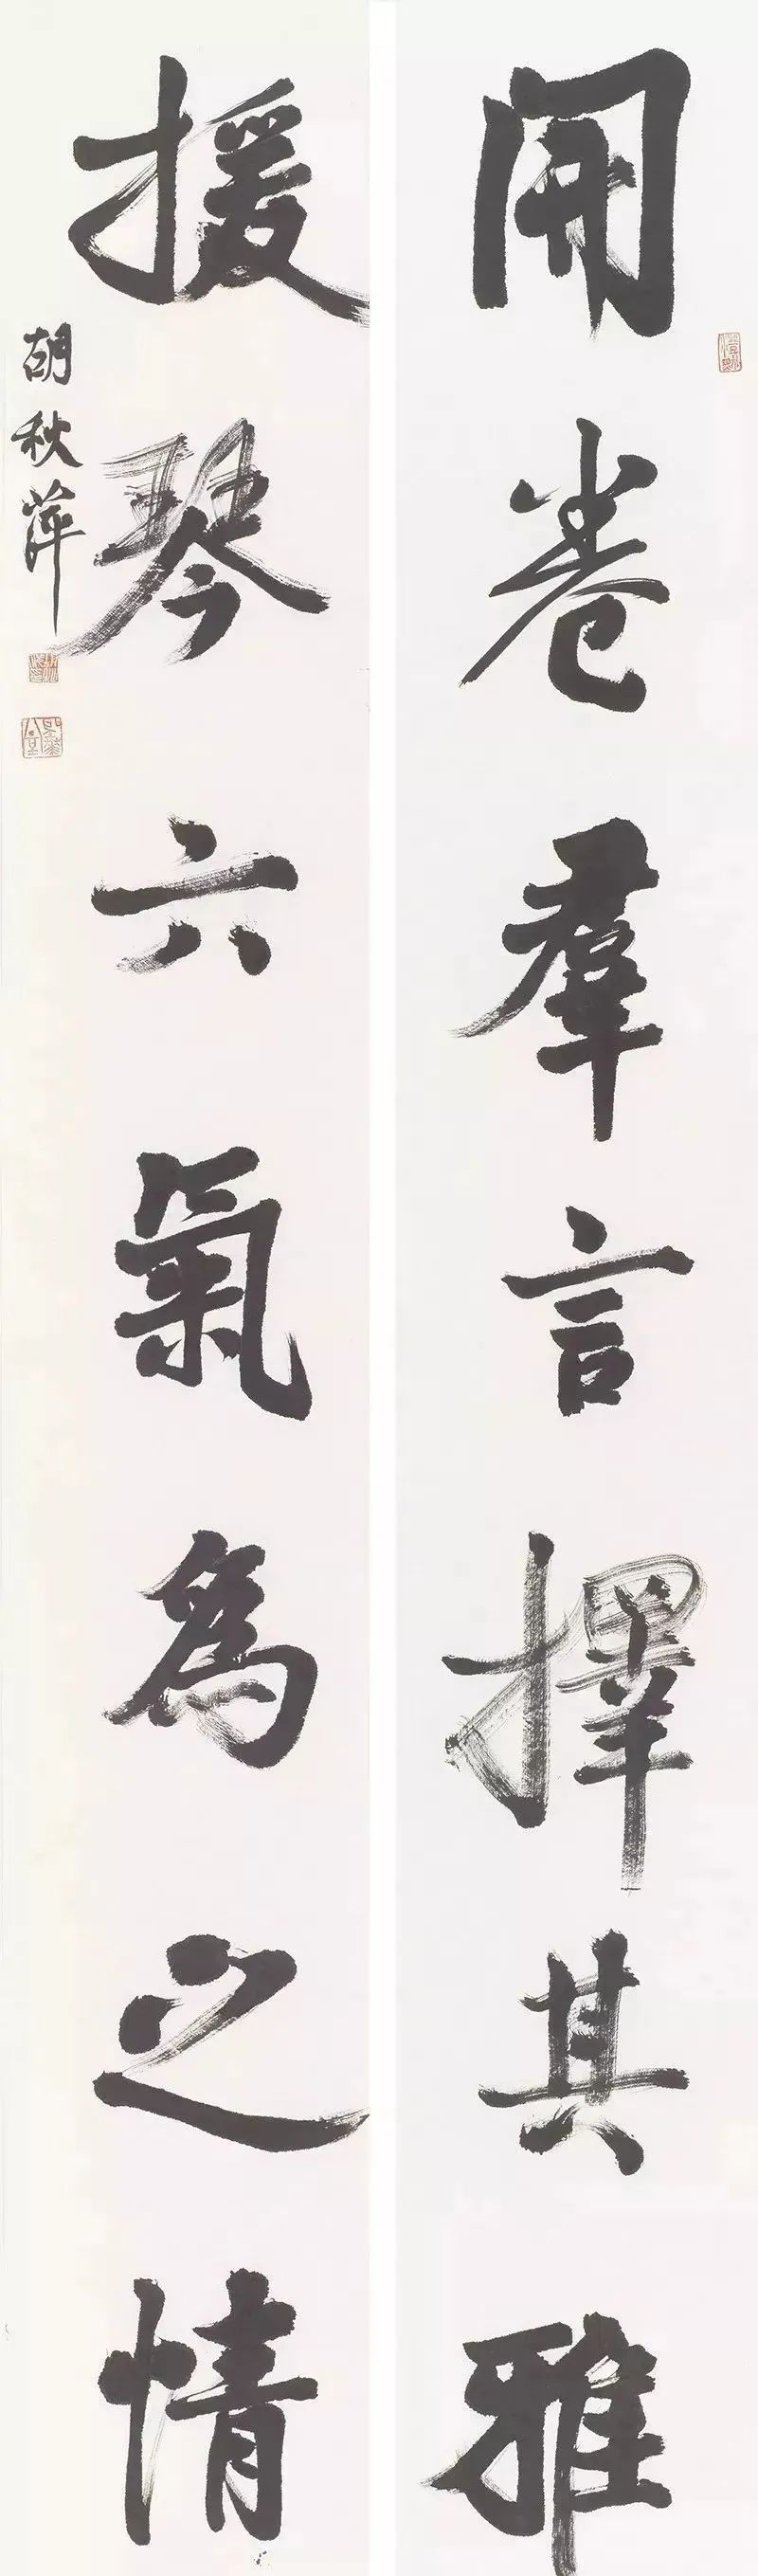 開卷羣言擇其雅
援琴六氣為之情
胡秋萍